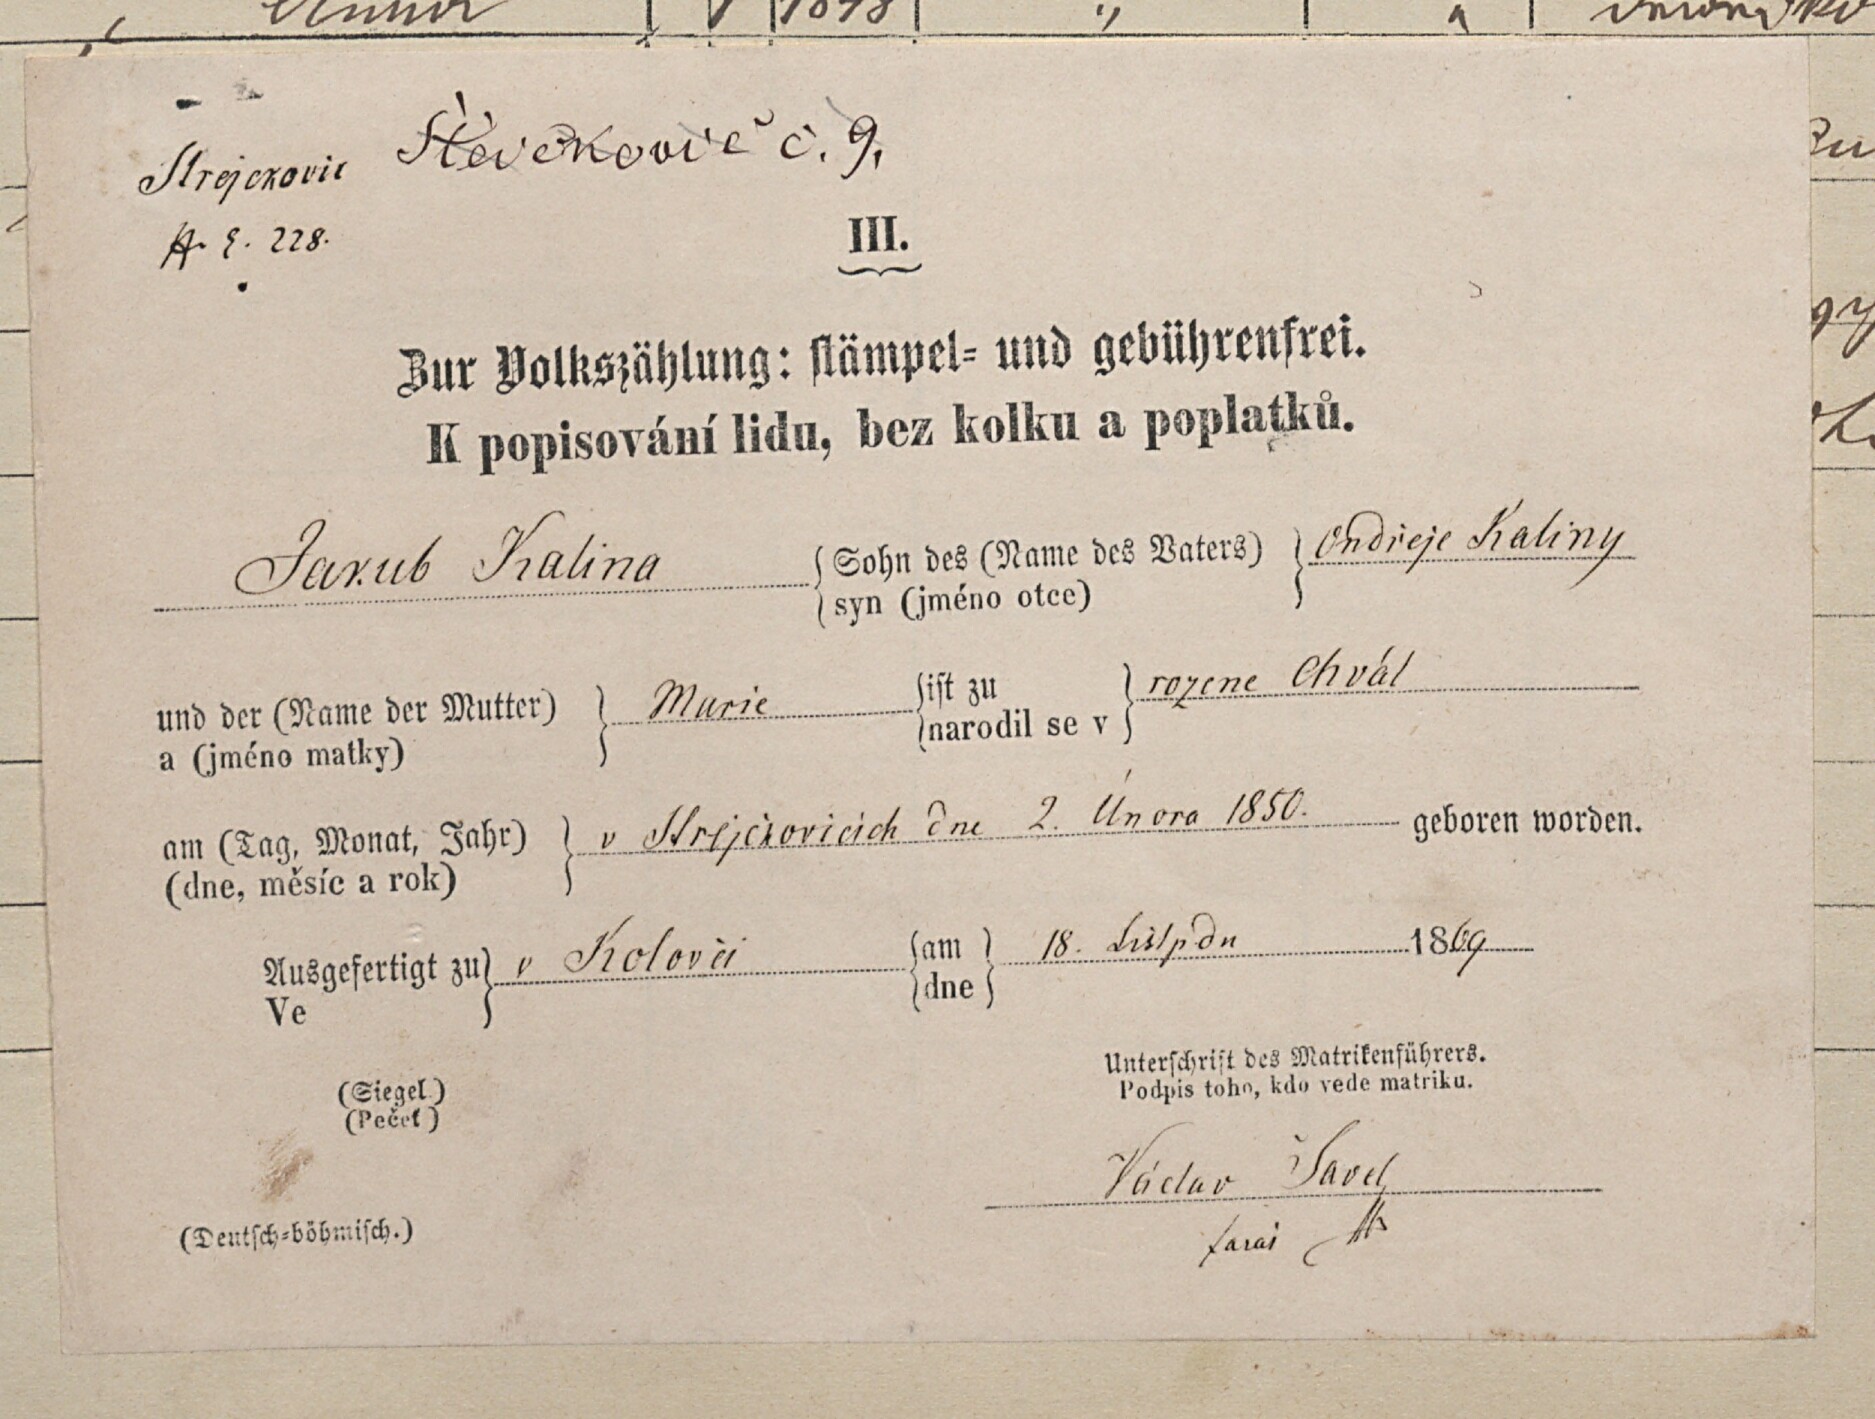 1848
Strejckovic
Števckovic č. 9.
A. Q. 228.
III.
Zur Volkszählung: stämpel- und gebührenfrei.
K popisování lidu, bez kolku a poplatků.
Jakub Kalina Sohn des (Name des Vaters) Ondřeje Kaliny
syn (jméno otce)
und der (Name der Mutter) Marie ist zu rozene Chvál
a (jméno matky) narodil se v
am (Tag, Monat, Jahr) v Strejčkovicích dne 2. Února 1850. geboren worden.
(dne, měsíc a rok)
Ausgefertigt zu v Kolovči am 18. Listpdu 1869
Ve dne
Unterschrift des Matrikenführers.
Podpis toho, kdo vede matriku.
(Siegel.)
(Pečeť)
Václav Šavel
farář
(Deutsch-böhmisch.)